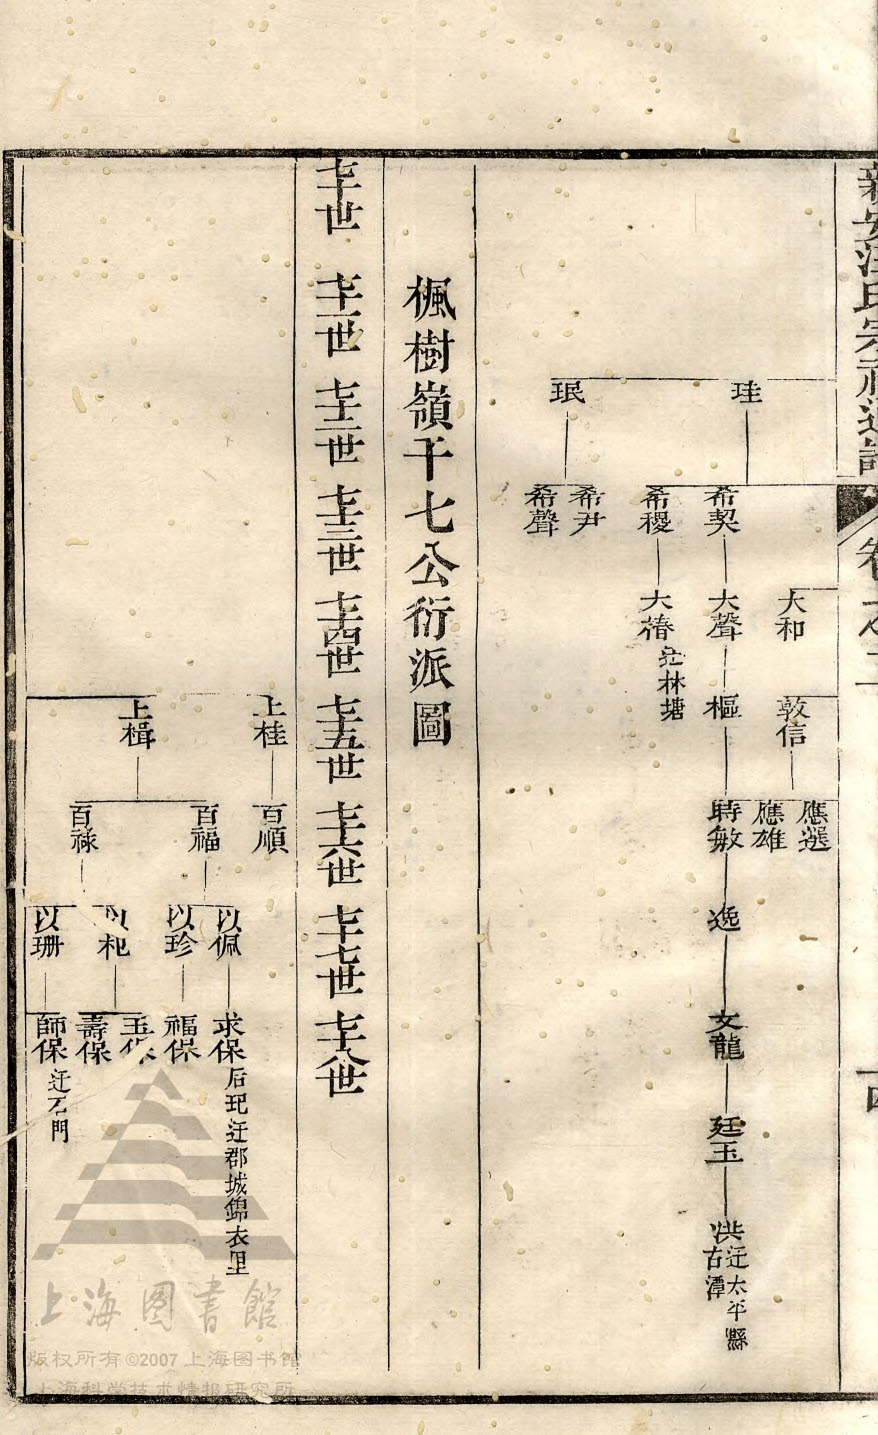 新安汪氏宗祠通譜
卷之二
珪
珉
希契
希稷
希尹
希聲
大和
大聲
大椿
迁林塘
敦信
樞
應選
應雄
時敏
逸
文龍
廷玉
洪
迁太平縣
古潭
楓樹嶺千七公衍派圖
七十世
七十一世
七十二世
七十三世
七十四世
七十五世
七十六世
七十七世
七十八世
上桂
上楫
百順
百福
百祿
以佩
以珍
以玘
以珊
求保
后玘迁郡城錦衣里
福保
玉保
壽保
師保
迁石門
上海图書館
版权所有©2007 上海图书馆
上海科学技术情报研究所